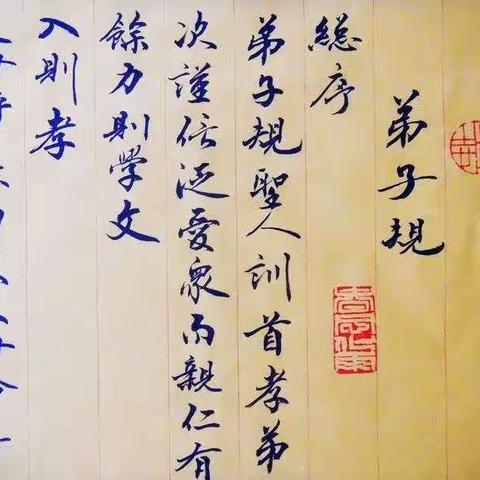 弟子規
総序
弟子規聖人訓首孝弟
次謹信泛愛衆而親仁有
餘力則學文
入則孝